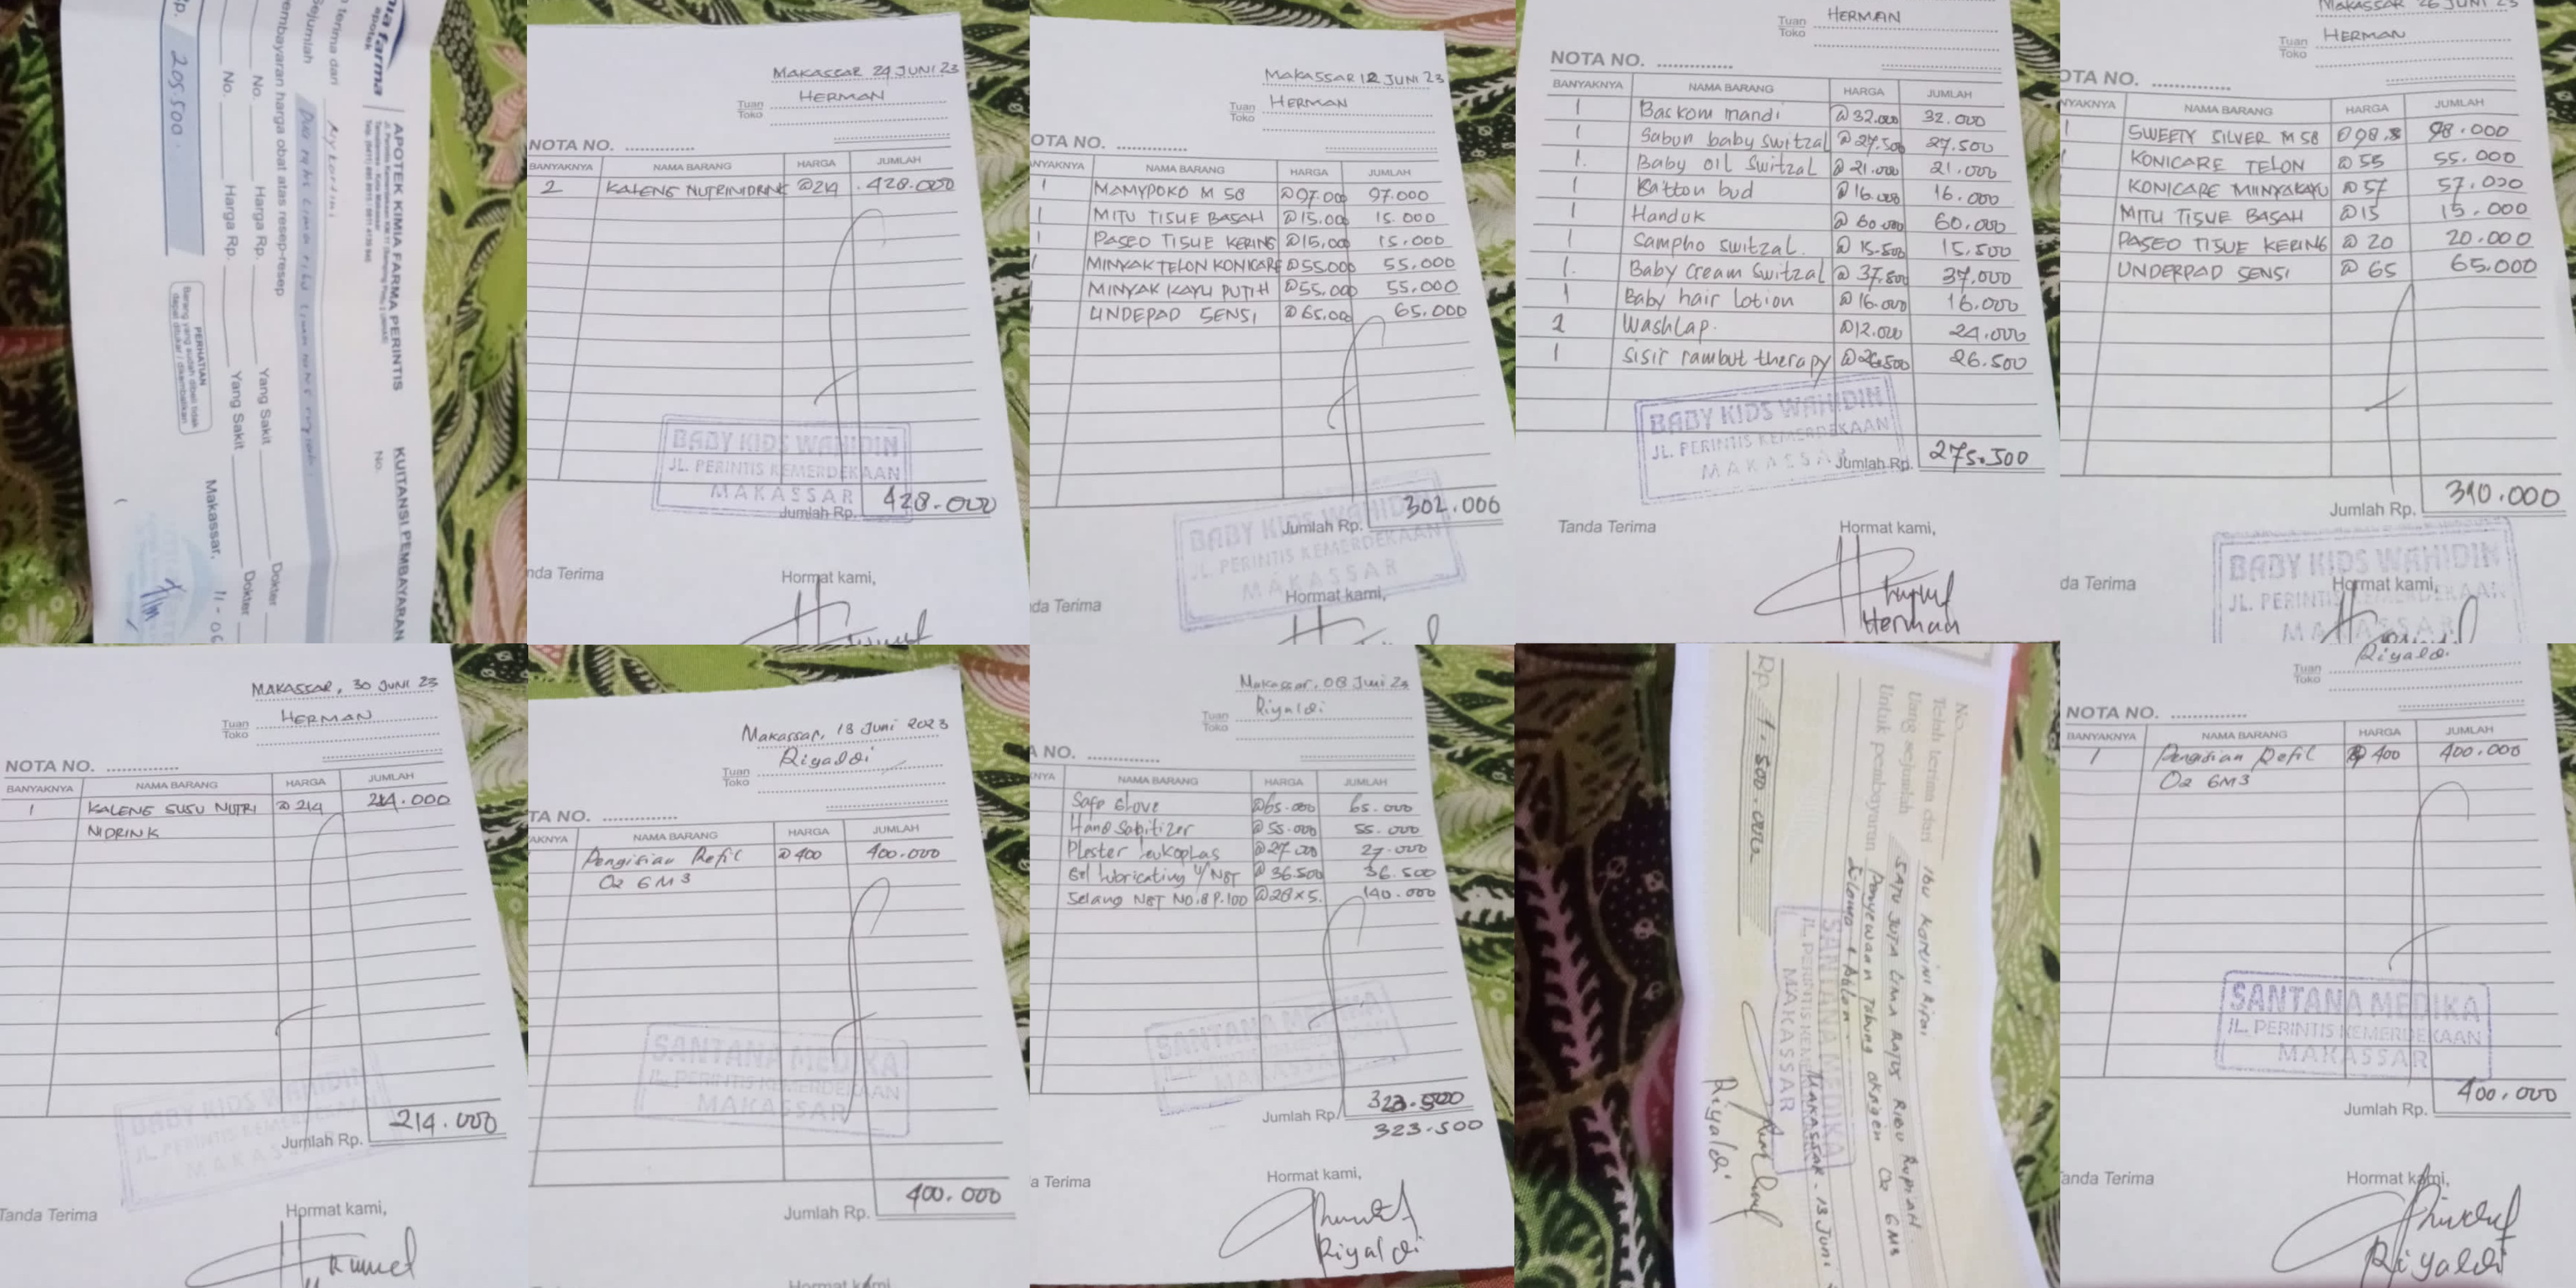 APOTEK KIMIA FARMA PERINTIS
KUITANSI PEMBAYARAN
No.
terima dari
sejumlah
embayaran harga obat atas resep-resep
No. Harga Rp. Yang Sakit Dokter
No. Harga Rp. Yang Sakit Dokter
205.500
PERHATIAN
Barang yang sudah dibeli tidak
dapat ditukar / dikembalikan
Makassar,
MAKASSAR 24 JUNI 23
Tuan HERMAN
Toko
NOTA NO.
BANYAKNYA NAMA BARANG HARGA JUMLAH
2 KALENG NUTRINIDRINK @214 428.000
BABY KIDS WAHIDIN
JL. PERINTIS KEMERDEKAAN
MAKASSAR
Jumlah Rp. 428.000
nda Terima Hormat kami,
MAKASSAR 12 JUNI 23
Tuan HERMAN
Toko
OTA NO.
NYAKNYA NAMA BARANG HARGA JUMLAH
1 MAMYPOKO M 58 @97.000 97.000
1 MITU TISUE BASAH @15.000 15.000
1 PASEO TISUE KERING @15.000 15.000
1 MINYAK TELON KONICARE @55.000 55.000
1 MINYAK KAYU PUTIH @55.000 55.000
1 UNDEPAD SENSI @65.000 65.000
Jumlah Rp. 302.000
BABY KIDS WAHIDIN
JL. PERINTIS KEMERDEKAAN
MAKASSAR
da Terima Hormat kami,
Tuan HERMAN
Toko
NOTA NO.
BANYAKNYA NAMA BARANG HARGA JUMLAH
1 Baskom mandi @32.000 32.000
1 Sabun baby switzal @27.500 27.500
1. Baby oil switzal @21.000 21.000
1 Katton bud @16.000 16.000
1 Handuk @60.000 60.000
1 Sampho switzal. @15.500 15.500
1. Baby cream switzal @37.500 37.000
1 Baby hair lotion @16.000 16.000
2 Washlap. @12.000 24.000
1 Sisir rambut therapy @26.500 26.500
BABY KIDS WAHIDIN
JL. PERINTIS KEMERDEKAAN
MAKASSAR
Jumlah Rp. 275.500
Tanda Terima Hormat kami,
Herman
MAKASSAR 26 JUNI 23
Tuan HERMAN
Toko
OTA NO.
NYAKNYA NAMA BARANG HARGA JUMLAH
1 SWEETY SILVER M 58 @98 98.000
KONICARE TELON @55 55.000
KONICARE MINYAKAYU @57 57.000
MITU TISUE BASAH @15 15.000
PASEO TISUE KERING @20 20.000
UNDERPAD SENSI @65 65.000
Jumlah Rp. 310.000
BABY KIDS WAHIDIN
JL. PERINTIS KEMERDEKAAN
MAKASSAR
da Terima Hormat kami,
MAKASSAR, 30 JUNI 23
Tuan HERMAN
Toko
NOTA NO.
BANYAKNYA NAMA BARANG HARGA JUMLAH
1 KALENG SUSU NUTRI @214 214.000
NIDRINK
BABY KIDS WAHIDIN
JL. PERINTIS KEMERDEKAAN
MAKASSAR
Jumlah Rp. 214.000
Tanda Terima Hormat kami,
Makassar, 13 Juni 2023
Tuan Riyaldi
Toko
TA NO.
AKNYA NAMA BARANG HARGA JUMLAH
Pengisian Refil @400 400.000
O2 6M3
SANTANA MEDIKA
JL. PERINTIS KEMERDEKAAN
MAKASSAR
Jumlah Rp. 400.000
Hormat kami,
Makassar, 08 Juni 23
Tuan Riyaldi
Toko
A NO.
NYA NAMA BARANG HARGA JUMLAH
Safe Glove @65.000 65.000
Hand Sanitizer @55.000 55.000
Plester leukoplas @27.000 27.000
Gel lubricating U/NGT @36.500 36.500
Selang NGT NO.8 P.100 @28x5. 140.000
SANTANA MEDIKA
JL. PERINTIS KEMERDEKAAN
MAKASSAR
Jumlah Rp. 323.500
323.500
a Terima Hormat kami,
Riyaldi
No.
Telah terima dari IBU KARTINI RIFAI
Uang sejumlah SATU JUTA LIMA RATUS RIBU RUPIAH
Untuk pembayaran Penyewaan Tabung oksigen O2 6M3
Selama 1 Bulan
MAKASSAR - 13 Juni
SANTANA MEDIKA
JL. PERINTIS KEMERDEKAAN
MAKASSAR
Rp. 1.500.000
Riyaldi
Tuan Riyaldi
Toko
NOTA NO.
BANYAKNYA NAMA BARANG HARGA JUMLAH
1 Pengisian Refil @400 400.000
O2 6M3
SANTANA MEDIKA
JL. PERINTIS KEMERDEKAAN
MAKASSAR
Jumlah Rp. 400.000
anda Terima Hormat kami,
Riyaldi